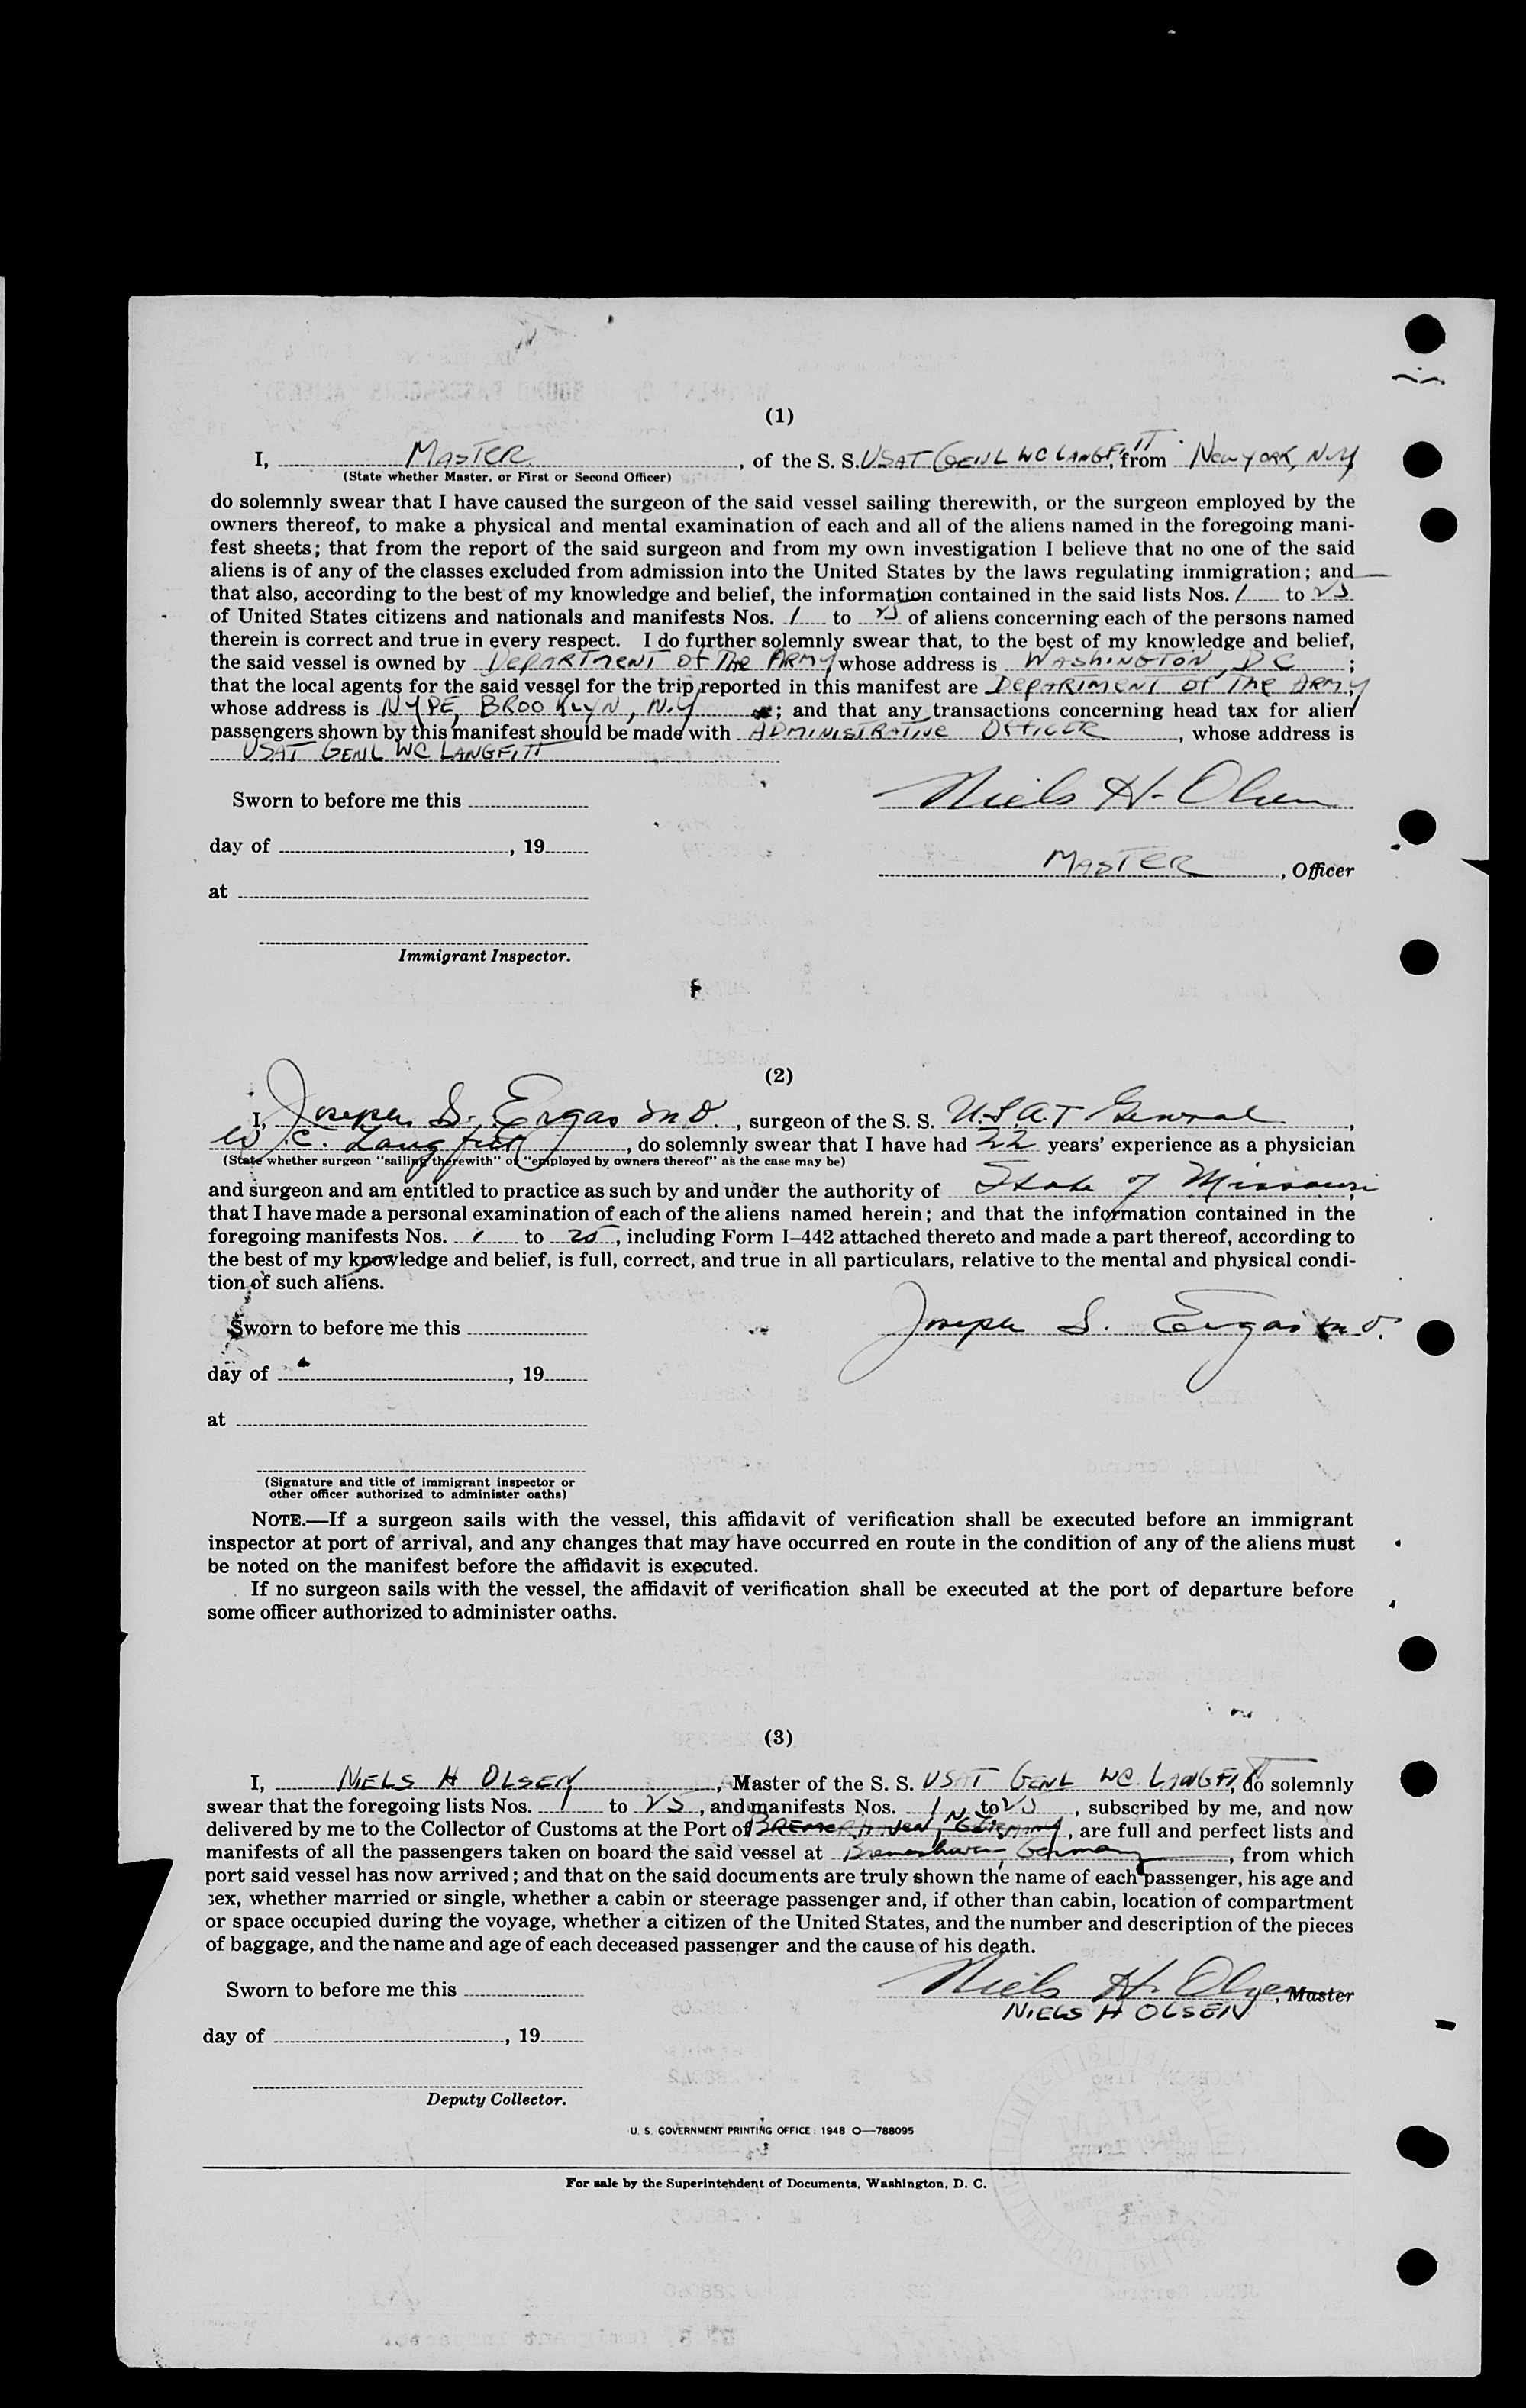 (1)
I, MASTER, of the S. S. USAT GENL WC LANGFITT, from New York, N.Y
(State whether Master, or First or Second Officer)
do solemnly swear that I have caused the surgeon of the said vessel sailing therewith, or the surgeon employed by the
owners thereof, to make a physical and mental examination of each and all of the aliens named in the foregoing mani-
fest sheets; that from the report of the said surgeon and from my own investigation I believe that no one of the said
aliens is of any of the classes excluded from admission into the United States by the laws regulating immigration; and
that also, according to the best of my knowledge and belief, the information contained in the said lists Nos. 1 to 25
of United States citizens and nationals and manifests Nos. 1 to 25 of aliens concerning each of the persons named
therein is correct and true in every respect. I do further solemnly swear that, to the best of my knowledge and belief,
the said vessel is owned by Department of The Army, whose address is WAShINGTON, D C;
that the local agents for the said vessel for the trip reported in this manifest are Department of The Army,
whose address is NYPE, BROOKLYN, N.Y; and that any transactions concerning head tax for alien
passengers shown by this manifest should be made with ADMINISTRATIVE OFFICER, whose address is
USAT GENL WC LANGFITT
Sworn to before me this
Niels H. Olsen
day of , 19
MASTER, Officer
at
Immigrant Inspector.
(2)
I, Joseph S. Ergas M.D., surgeon of the S. S. U.S.A.T General,
W. C. Langfitt, do solemnly swear that I have had 22 years' experience as a physician
(State whether surgeon "sailing therewith" or "employed by owners thereof" as the case may be)
and surgeon and am entitled to practice as such by and under the authority of State of Missouri;
that I have made a personal examination of each of the aliens named herein; and that the information contained in the
foregoing manifests Nos. 1 to 25, including Form I–442 attached thereto and made a part thereof, according to
the best of my knowledge and belief, is full, correct, and true in all particulars, relative to the mental and physical condi-
tion of such aliens.
Sworn to before me this
Joseph S. Ergas M.D.
day of , 19
at
(Signature and title of immigrant inspector or
other officer authorized to administer oaths)
NOTE.—If a surgeon sails with the vessel, this affidavit of verification shall be executed before an immigrant
inspector at port of arrival, and any changes that may have occurred en route in the condition of any of the aliens must
be noted on the manifest before the affidavit is executed.
If no surgeon sails with the vessel, the affidavit of verification shall be executed at the port of departure before
some officer authorized to administer oaths.
(3)
I, NIELS H OLSEN, Master of the S. S. USAT GENL WC LANGFITT, do solemnly
swear that the foregoing lists Nos. 1 to 25, and manifests Nos. 1 to 25, subscribed by me, and now
delivered by me to the Collector of Customs at the Port of BREMERHAVEN, GERMANY, are full and perfect lists and
manifests of all the passengers taken on board the said vessel at Bremerhaven, Germany, from which
port said vessel has now arrived; and that on the said documents are truly shown the name of each passenger, his age and
sex, whether married or single, whether a cabin or steerage passenger and, if other than cabin, location of compartment
or space occupied during the voyage, whether a citizen of the United States, and the number and description of the pieces
of baggage, and the name and age of each deceased passenger and the cause of his death.
Sworn to before me this
Niels H. Olsen, Master
NIELS H OLSEN
day of , 19
Deputy Collector.
U. S. GOVERNMENT PRINTING OFFICE : 1948 O—788095
For sale by the Superintendent of Documents, Washington, D. C.